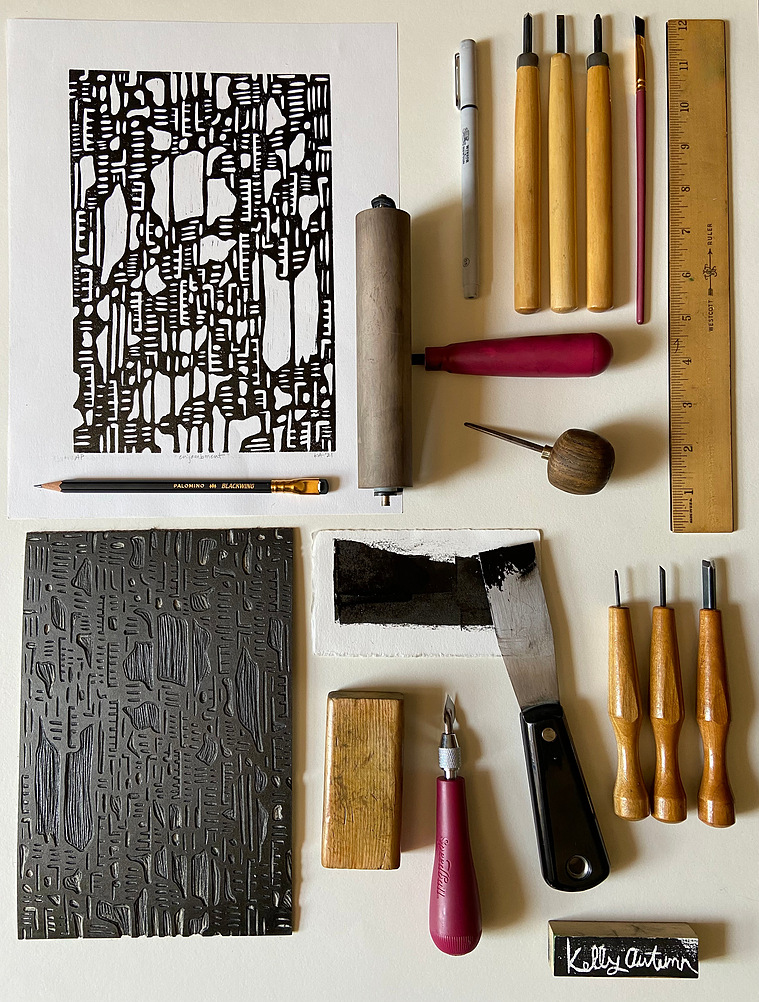 AP "enjambment" KA '21
PALOMINO BLACKWING
12
11
10
9
8
7
6
5
4
3
2
1
WESTCOTT RULER
Speedball
Kelly Autumn